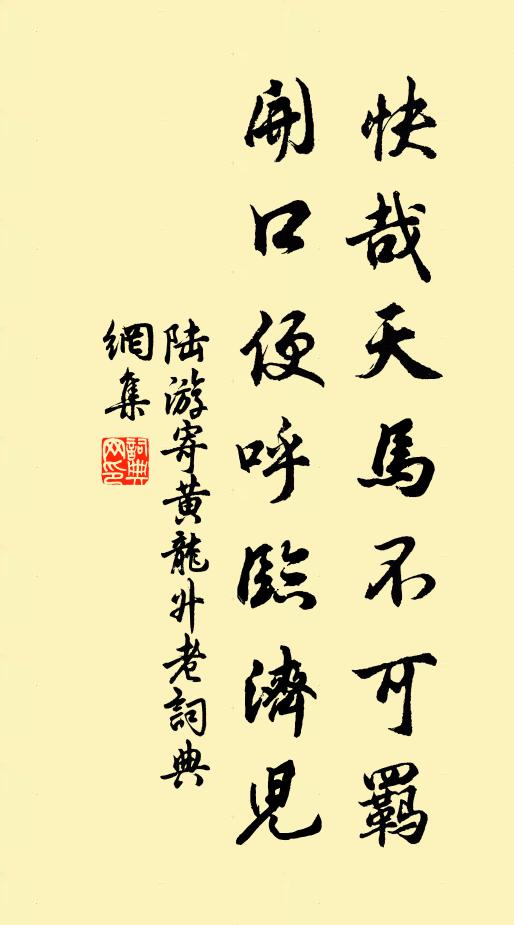 快哉天馬不可羈
開口便呼臨濟児
陸游寄黃龍升老詞典
網集
詞典
网印